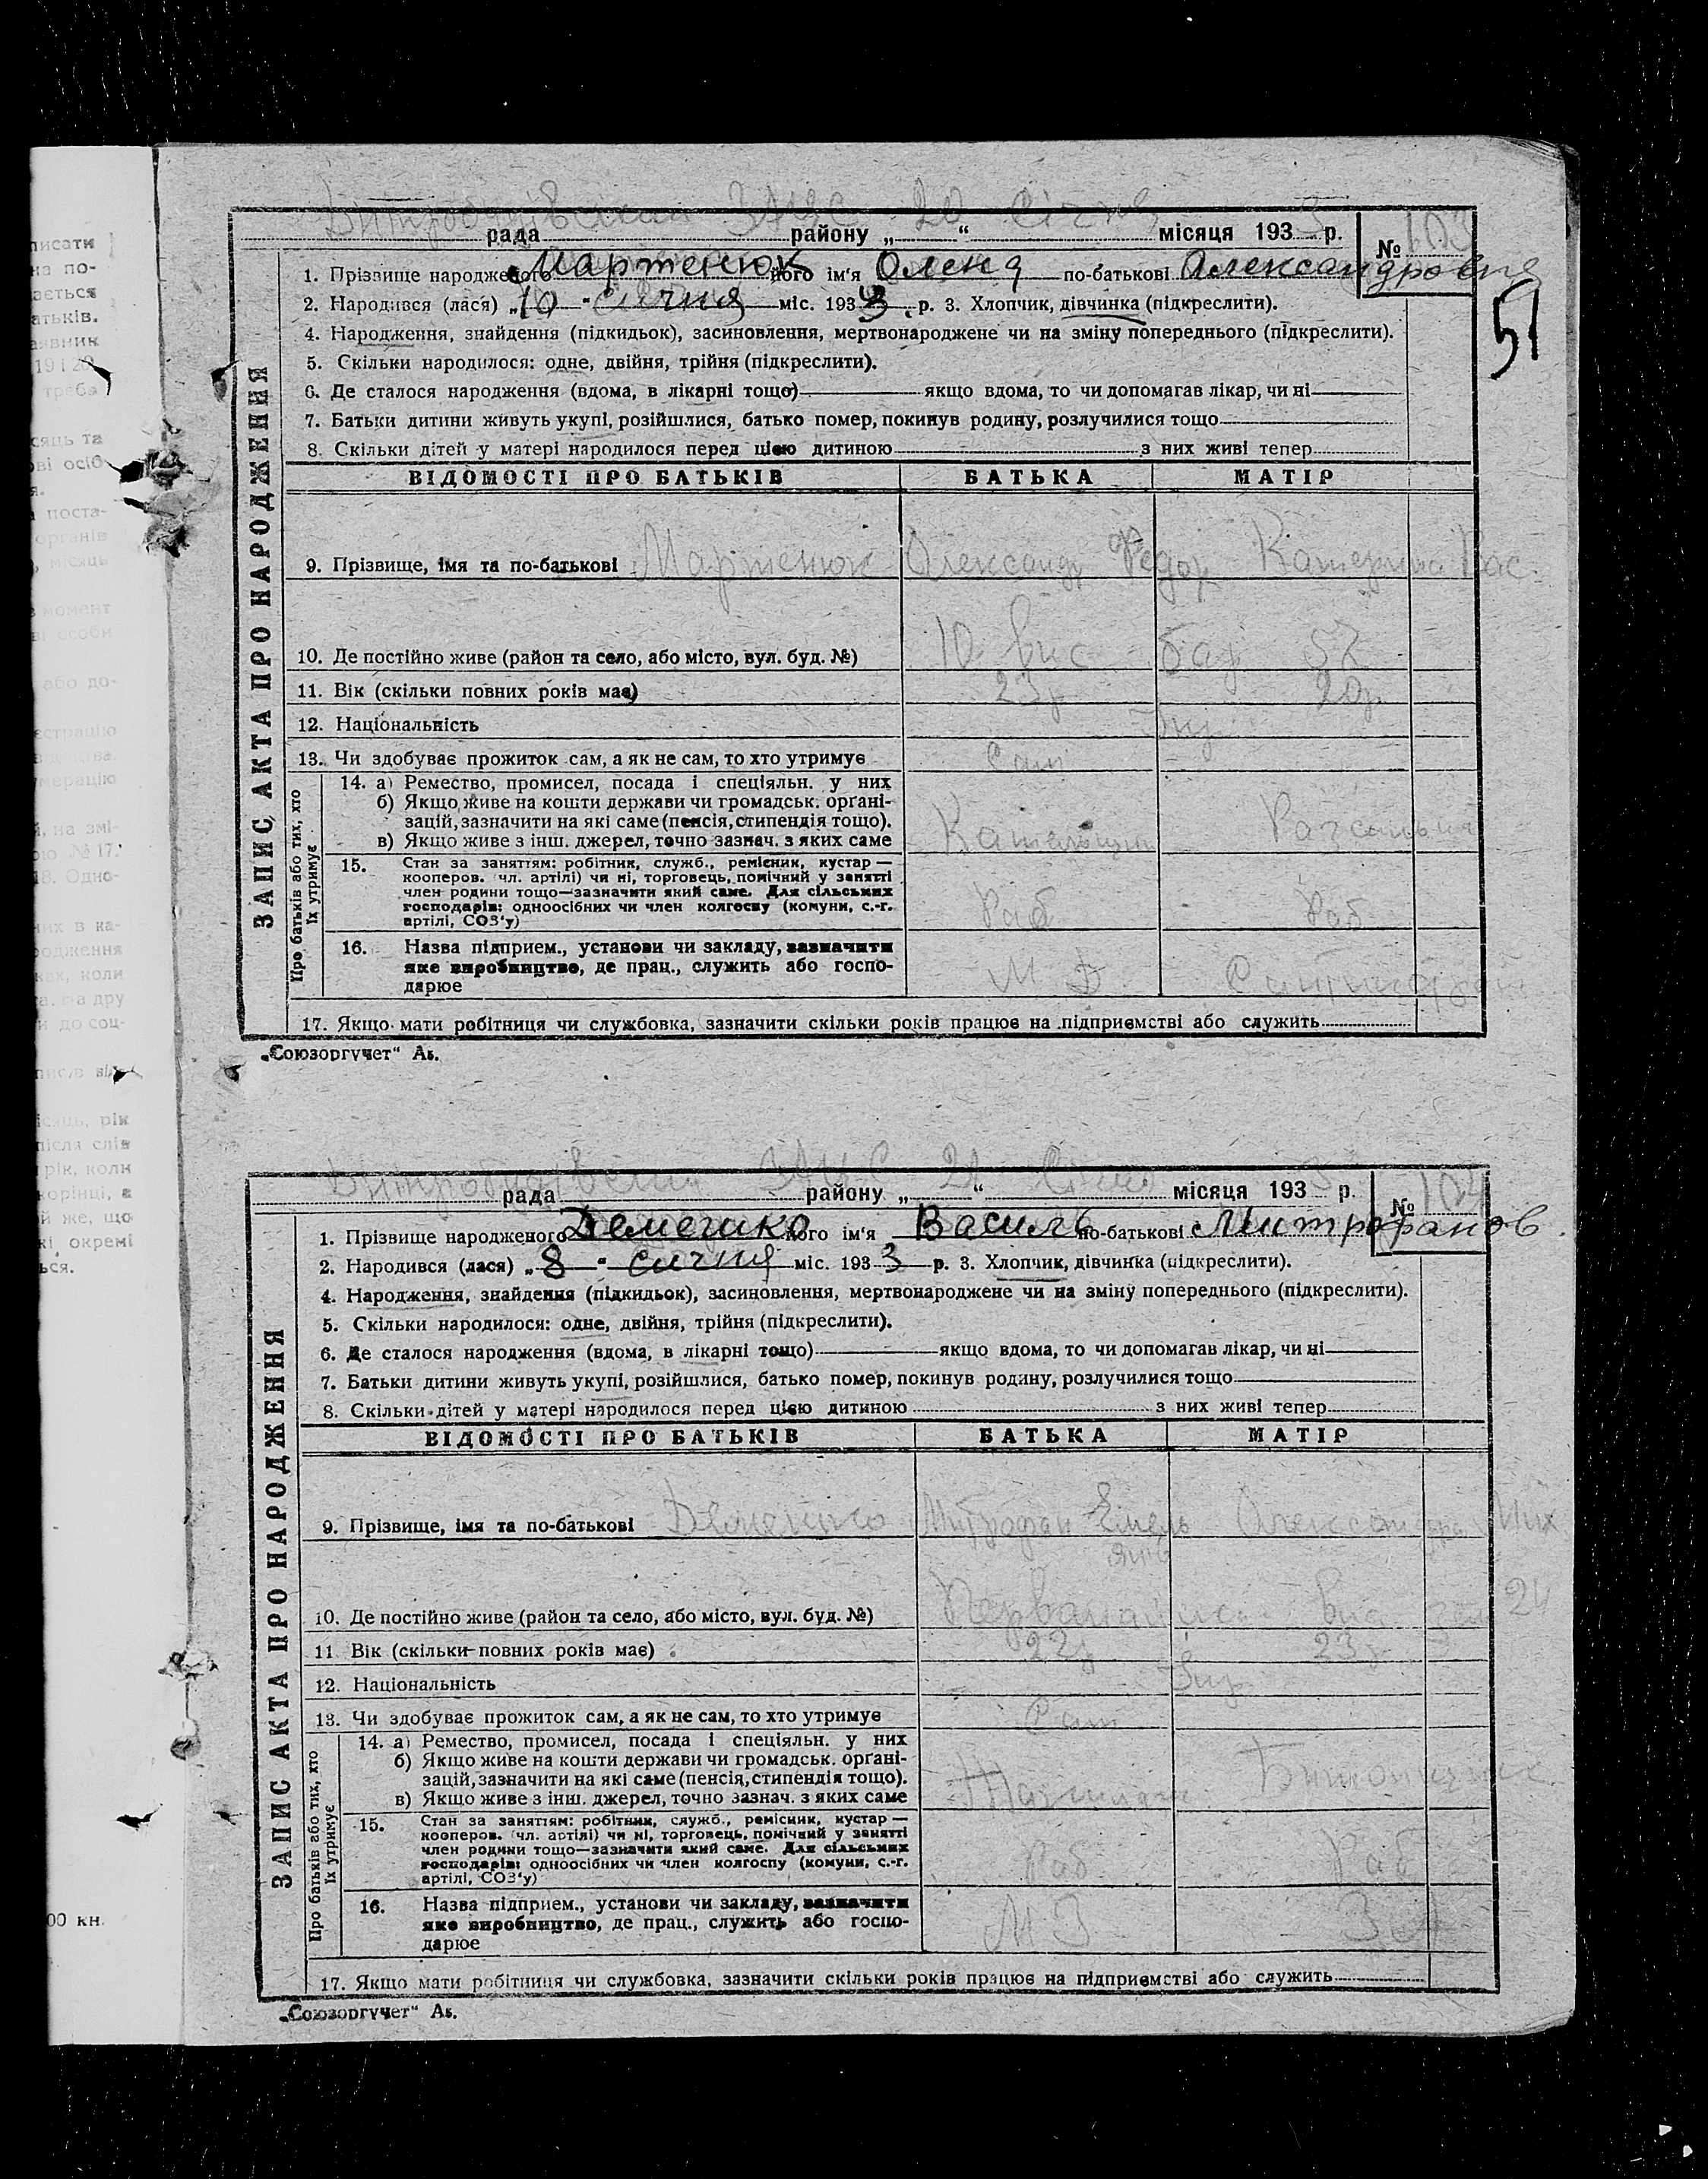 писати
на по-
ається
атьків.
аявник
19 і 20
треба
сяць та
ові осіб
я.
поста-
органів
місяць
момент
ві особи
або до-
єстрацію
мерацію
й, на змі-
ою № 17.
18. Одно-
них в ка-
родження
ках, коли
а. На дру
и до соц-
місяць, рік
після слів
рік, коли
сторінці, а
й же, що
окремі
ься.
00 кн.
ЗАГС 20 Січня 3
рада района „ “ місяця 193 р. № 103
1. Прізвище народженого Мартенюк його ім'я Олена по-батькові Александровна
51
2. Народився (лася) „10“ січня міс. 1933 р. 3. Хлопчик, дівчинка (підкреслити).
4. Народження, знайдення (підкидьок), засиновлення, мертвонароджене чи на зміну попереднього (підкреслити).
5. Скільки народилося: одне, двійня, трійня (підкреслити).
6. Де сталося народження (вдома, в лікарні тощо) якщо вдома, то чи допомагав лікар, чи ні
7. Батьки дитини живуть укупі, розійшлися, батько помер, покинув родину, розлучилися тощо
8. Скільки дітей у матері народилося перед цією дитиною з них живі тепер
ЗАПИС АКТА ПРО НАРОДЖЕННЯ
ВІДОМОСТІ ПРО БАТЬКІВ БАТЬКА МАТІР
9. Прізвище, імя та по-батькові Мартенюк Олександр Федор Катерина Вас.
10. Де постійно живе (район та село, або місто, вул. буд. №) 10 57
11. Вік (скільки повних років має) 23 р 20 р.
12. Національність Укр
13. Чи здобуває прожиток сам, а як не сам, то хто утримує Сам
Про батьків або тих, хто їх утримує
14. а) Ремество, промисел, посада і спеціяльн. у них
б) Якщо живе на кошти держави чи громадськ. орґані-
зацій, зазначити на які саме (пенсія, стипендія тощо).
в) Якщо живе з інш. джерел, точно зазнач. з яких саме
15. Стан за заняттям: робітник, служб., ремісник, кустар —
кооперов. (чл. артілі) чи ні, торговець, помічний у занятті
член родини тощо—зазначити який саме. Для сільських
господарів: одноосібних чи член колгоспу (комуни, с.-г.
артілі, СОЗ'у) Раб Раб
16. Назва підприєм., установи чи закладу, зазначити
яке виробництво, де прац., служить або госпо-
дарює
17. Якщо мати робітниця чи службовка, зазначити скільки років працює на підприємстві або служить
„Союзоргучет“ Аs.
ЗАГС 21 Січня 3
рада району „ “ місяця 193 р. № 104
1. Прізвище народженого Демешко його ім'я Василь по-батькові Митрофанов.
2. Народився (лася) „8“ січня міс. 1933 р. 3. Хлопчик, дівчинка (підкреслити).
4. Народження, знайдення (підкидьок), засиновлення, мертвонароджене чи на зміну попереднього (підкреслити).
5. Скільки народилося: одне, двійня, трійня (підкреслити).
6. Де сталося народження (вдома, в лікарні тощо) якщо вдома, то чи допомагав лікар, чи ні
7. Батьки дитини живуть укупі, розійшлися, батько помер, покинув родину, розлучилися тощо
8. Скільки дітей у матері народилося перед цією дитиною з них живі тепер
ЗАПИС АКТА ПРО НАРОДЖЕННЯ
ВІДОМОСТІ ПРО БАТЬКІВ БАТЬКА МАТІР
9. Прізвище, імя та по-батькові Митрофан Емель Олександра Мих
янів
10. Де постійно живе (район та село, або місто, вул. буд. №) 24
11. Вік (скільки повних років має) 22 р 23 р
12. Національність Укр
13. Чи здобуває прожиток сам, а як не сам, то хто утримує Сам
Про батьків або тих, хто їх утримує
14. а) Ремество, промисел, посада і спеціяльн. у них
б) Якщо живе на кошти держави чи громадськ. орґані-
зацій, зазначити на які саме (пенсія, стипендія тощо).
в) Якщо живе з інш. джерел, точно зазнач. з яких саме
15. Стан за заняттям: робітник, служб., ремісник, кустар —
кооперов. (чл. артілі) чи ні, торговець, помічний у занятті
член родини тощо—зазначити який саме. Для сільських
господарів: одноосібних чи член колгоспу (комуни, с.-г.
артілі, СОЗ'у) Раб Раб
16. Назва підприєм., установи чи закладу, зазначити
яке виробництво, де прац., служить або госпо-
дарює
17. Якщо мати робітниця чи службовка, зазначити скільки років працює на підприємстві або служить
„Союзоргучет“ Аs.